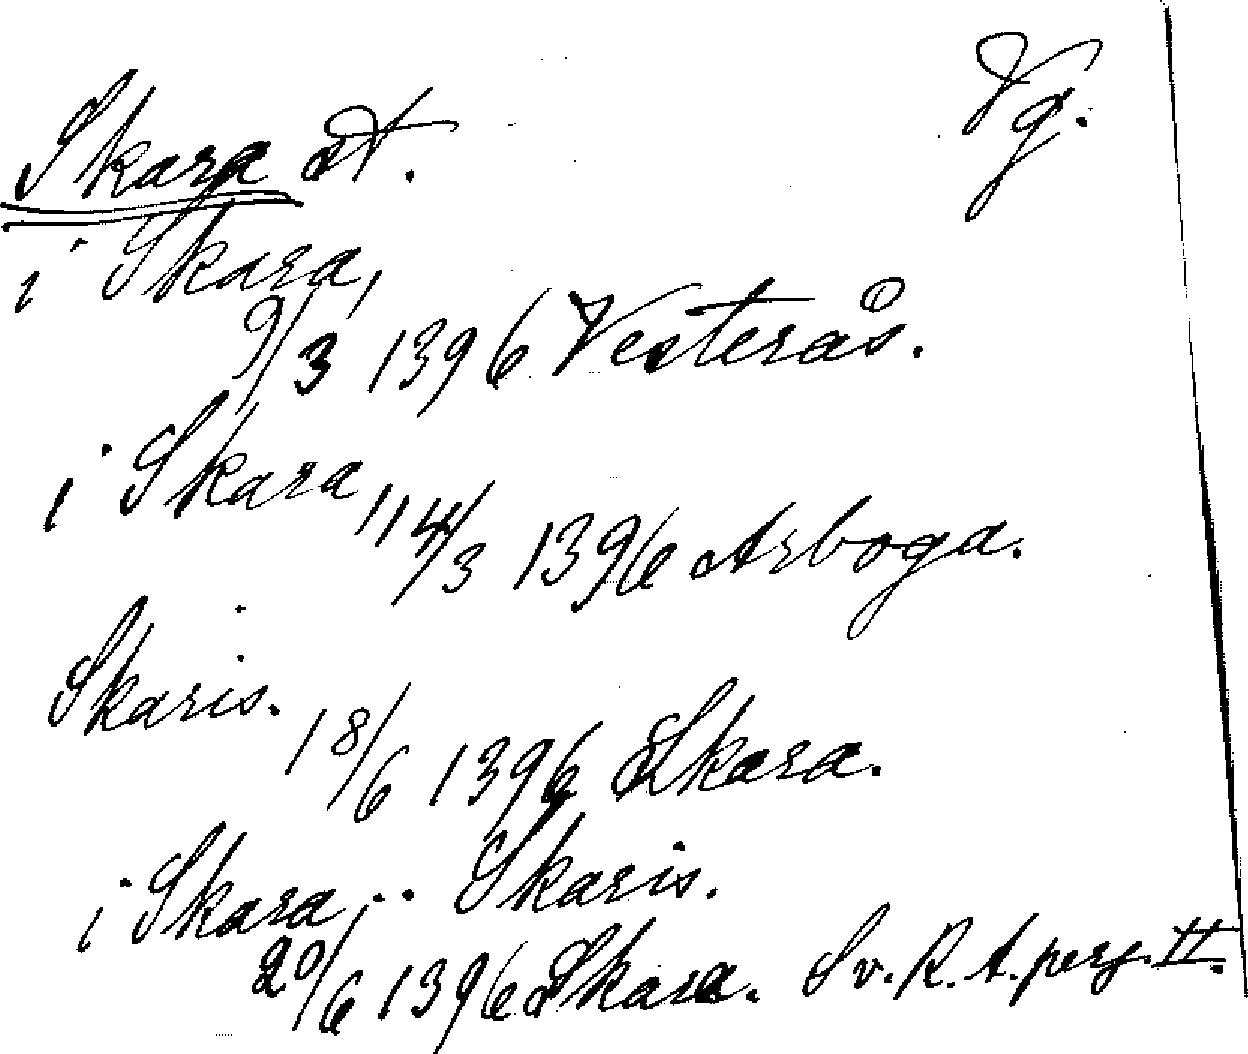 Vg.
Skara st.
i Skara,
9/3 1396 Vesterås.
i Skara,
14/3 1396 Arboga.
Skaris.
18/6 1396 Skara.
i Skara, .. Skaris.
20/6 1396 Skara. Sv. R. A. perg. II.